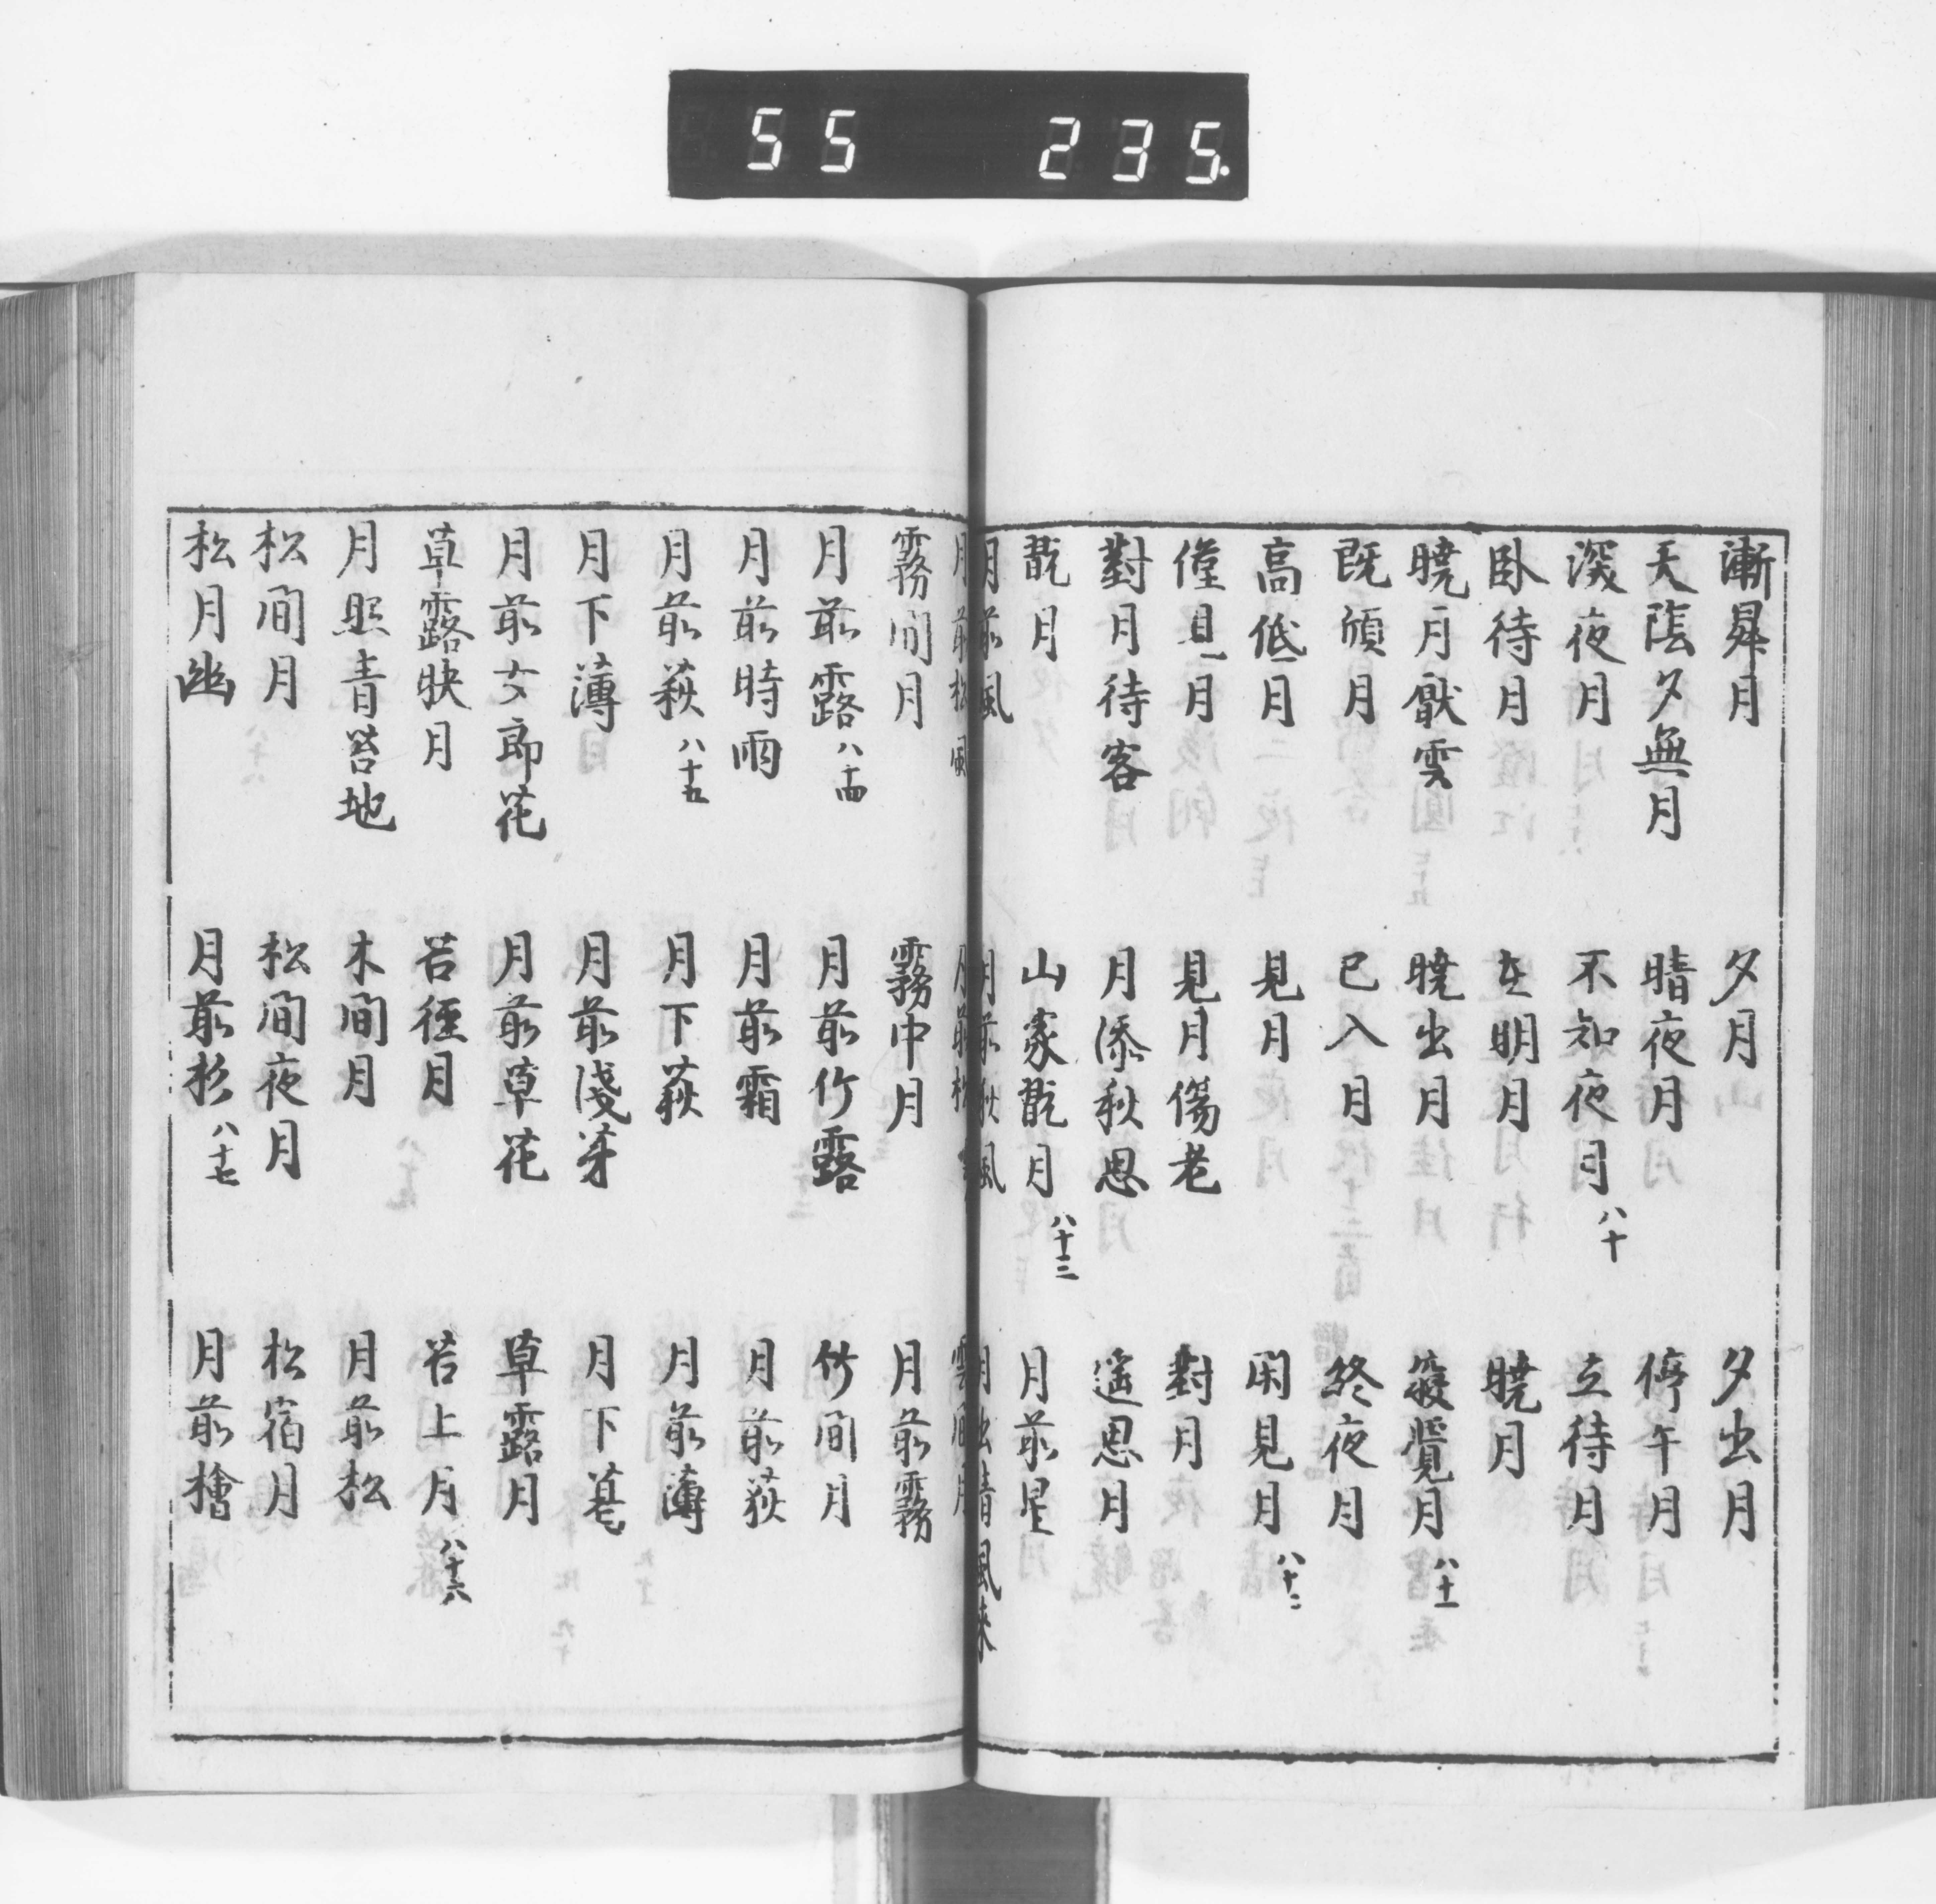 55 235.
漸昇月 夕月 夕出月
天陰夕無月 晴夜月 停午月
深夜月 不知夜月 八十 立待月
臥待月 在明月 曉月
曉月厭雲 曉出月 寢覺月 八十一
既傾月 已入月 終夜月
高低月 見月 閑見月 八十二
僅見月 見月傷老 對月
對月待客 月添秋思 遙思月
翫月 山家翫月 八十三 月前星
月前風 月前秋風 月出晴風來
月前松風 雲間月
霧間月 霧中月 月前霧
月前露 八十四 月前竹露 竹間月
月前時雨 月前霜 月前荻
月前萩 八十五 月下萩 月前薄
月下薄 月前淺茅 月下草
月前女郎花 月前草花 草露月
草露映月 苔徑月 苔上月 八十六
月照青苔地 木間月 月前松
松間月 松間夜月 松宿月
松月幽 月前杉 八十七 月前檜